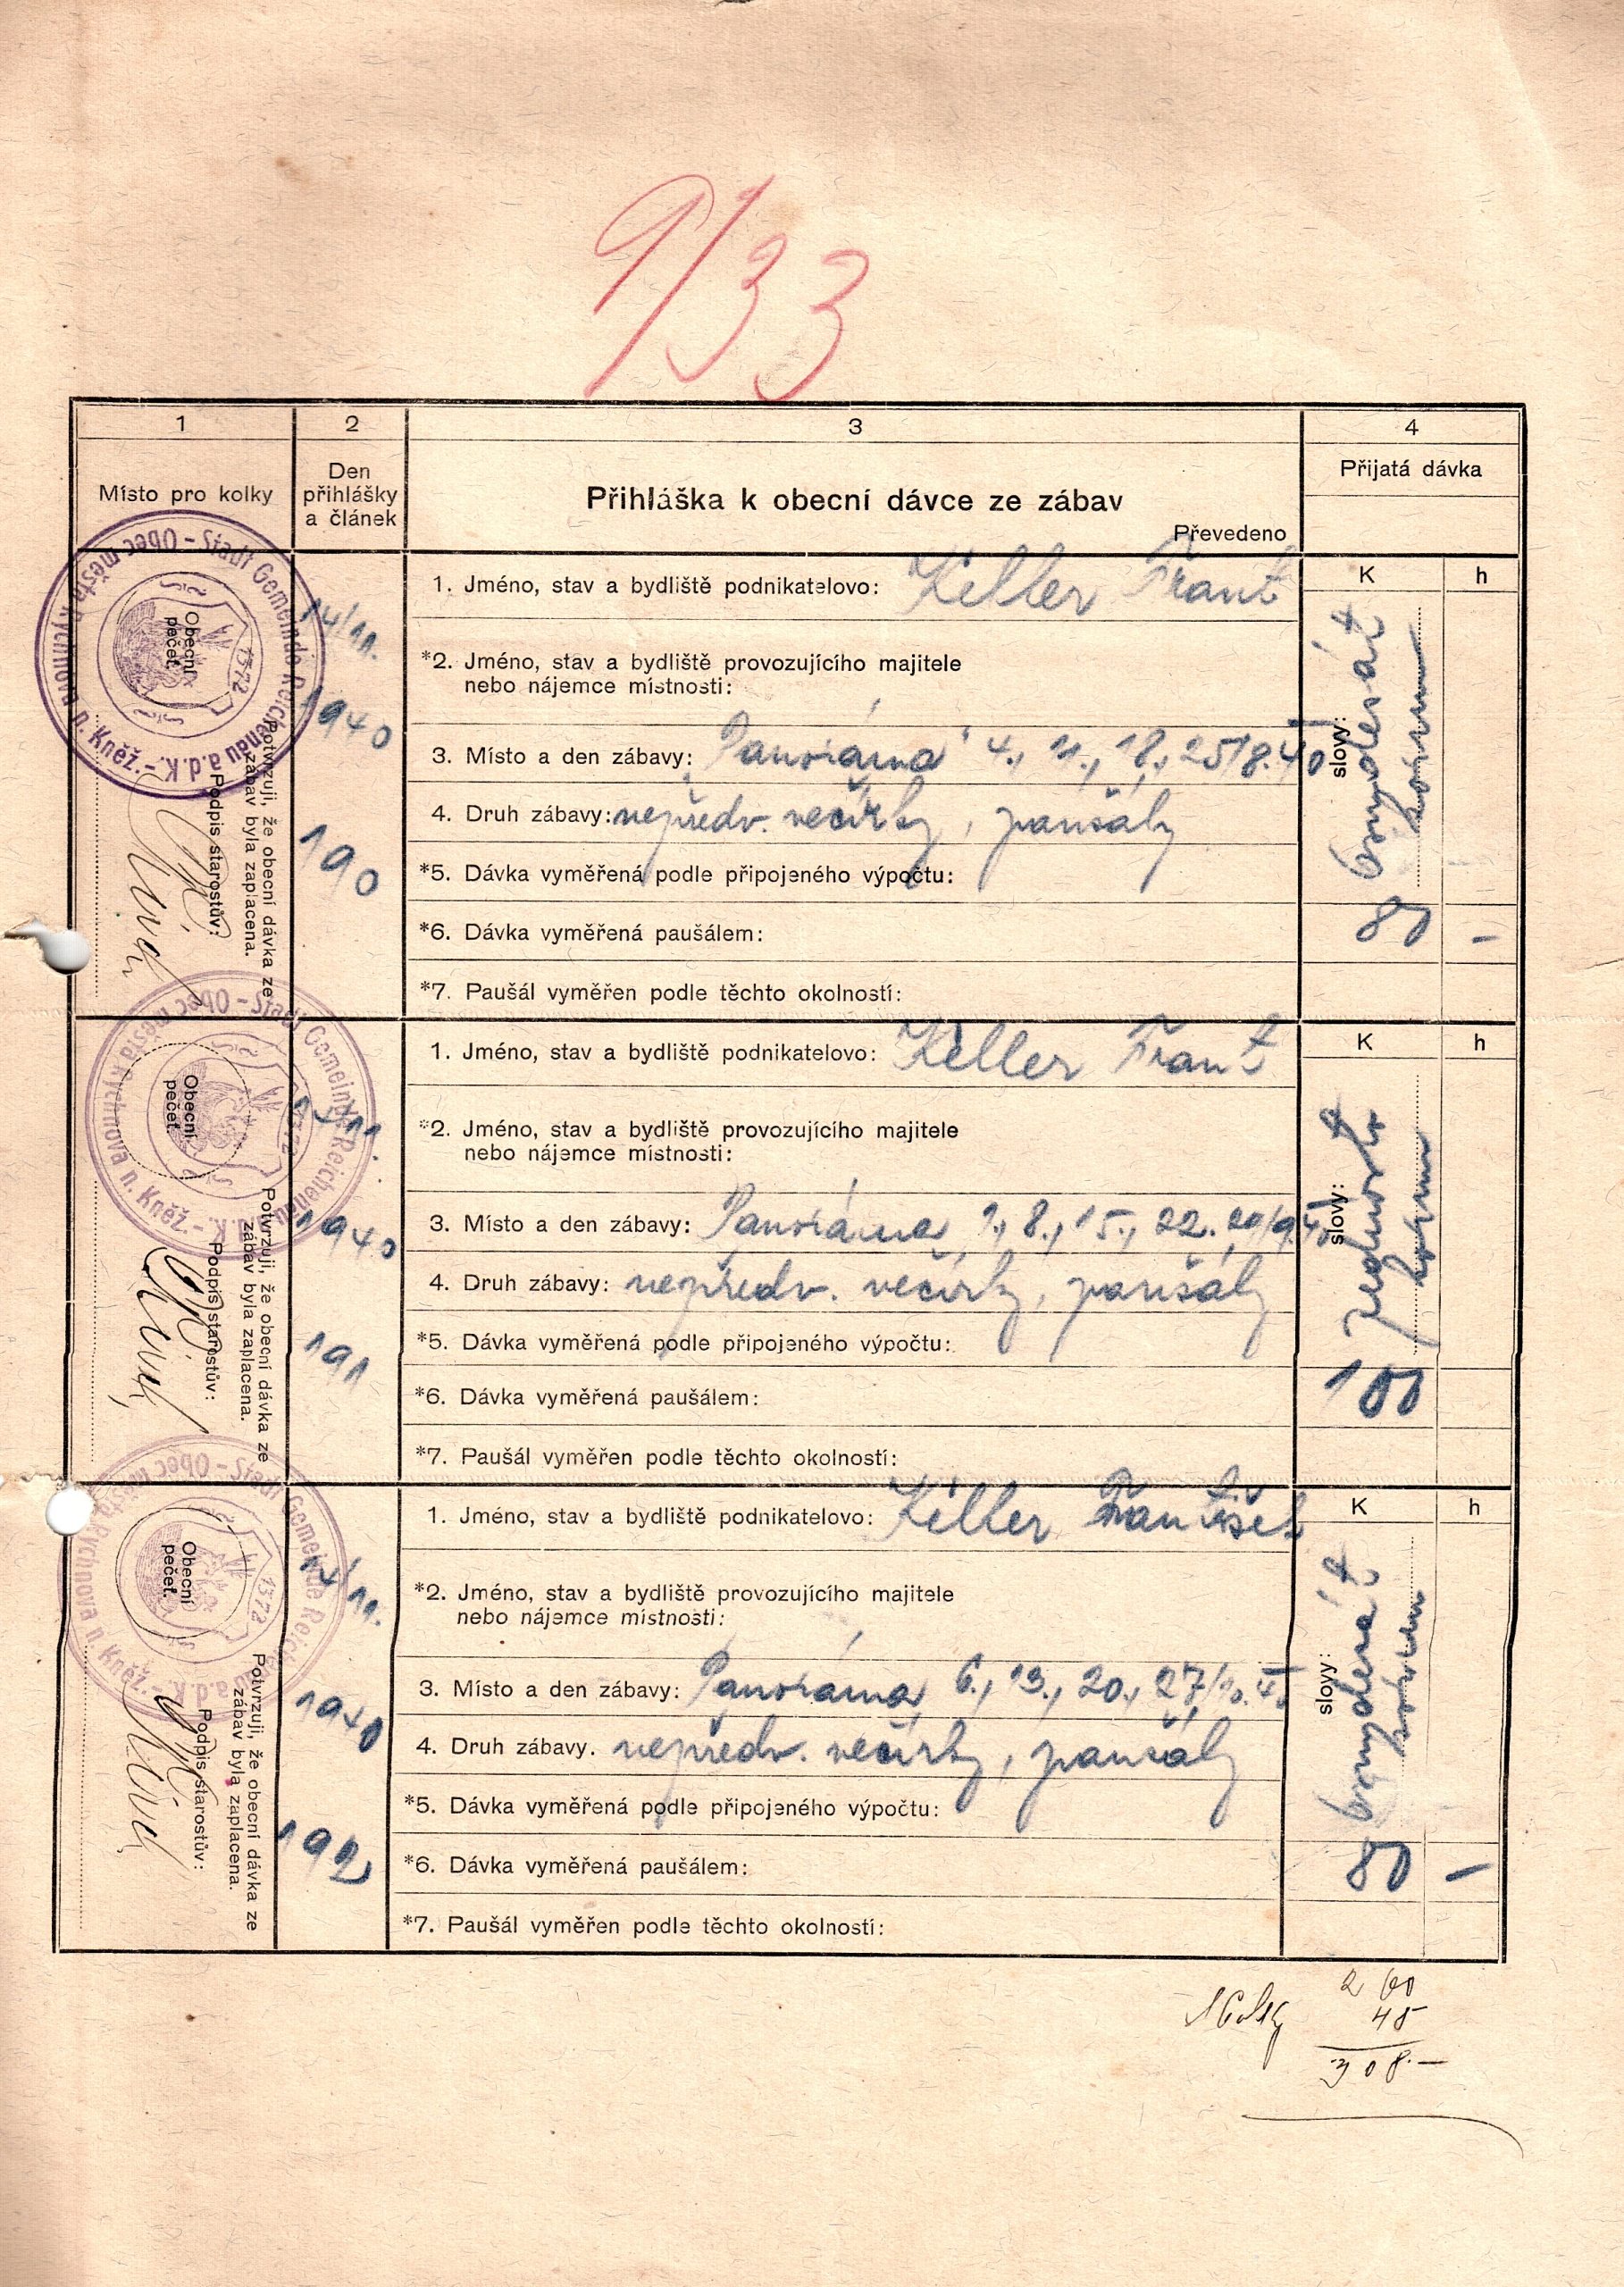 933
1
2
3
4
Místo pro kolky
Den
přihlášky
a článek
Přihláška k obecní dávce ze zábav
Převedeno
Přijatá dávka
Stadt Gemeinde Reichenau a.d.K. - Obec města Rychnova n. Kněž. -
1572
Obecní
pečeť.
Potvrzuji, že obecní dávka ze
zábav byla zaplacena.
Podpis starostův:
14/11.
1940
190
1. Jméno, stav a bydliště podnikatelovo: Keller Frant
*2. Jméno, stav a bydliště provozujícího majitele
nebo nájemce místnosti:
3. Místo a den zábavy: Panoráma 4., 11., 18., 25/8.40
4. Druh zábavy: nepředv. večírky, paušály
*5. Dávka vyměřená podle připojeného výpočtu:
*6. Dávka vyměřená paušálem:
*7. Paušál vyměřen podle těchto okolností:
K h
slovy: osmdesát
korun
80 –
Stadt Gemeinde Reichenau a.d.K. - Obec města Rychnova n. Kněž. -
1572
Obecní
pečeť.
Potvrzuji, že obecní dávka ze
zábav byla zaplacena.
Podpis starostův:
14/11.
1940
191
1. Jméno, stav a bydliště podnikatelovo: Keller Frant
*2. Jméno, stav a bydliště provozujícího majitele
nebo nájemce místnosti:
3. Místo a den zábavy: Panoráma 1., 8., 15., 22.
4. Druh zábavy: nepředv. večírky, paušály
*5. Dávka vyměřená podle připojeného výpočtu:
*6. Dávka vyměřená paušálem:
*7. Paušál vyměřen podle těchto okolností:
K h
slovy: jednosto
korun
100
Stadt Gemeinde Reichenau a.d.K. - Obec města Rychnova n. Kněž. -
1572
Obecní
pečeť.
Potvrzuji, že obecní dávka ze
zábav byla zaplacena.
Podpis starostův:
14/11.
1940
192
1. Jméno, stav a bydliště podnikatelovo: Keller František
*2. Jméno, stav a bydliště provozujícího majitele
nebo nájemce místnosti:
3. Místo a den zábavy: Panoráma 6., 13., 20., 27/10.40
4. Druh zábavy. nepředv. večírky, paušály
*5. Dávka vyměřená podle připojeného výpočtu:
*6. Dávka vyměřená paušálem:
*7. Paušál vyměřen podle těchto okolností:
K h
slovy: osmdesát
korun
80 –
260
Kolky 48
308.–